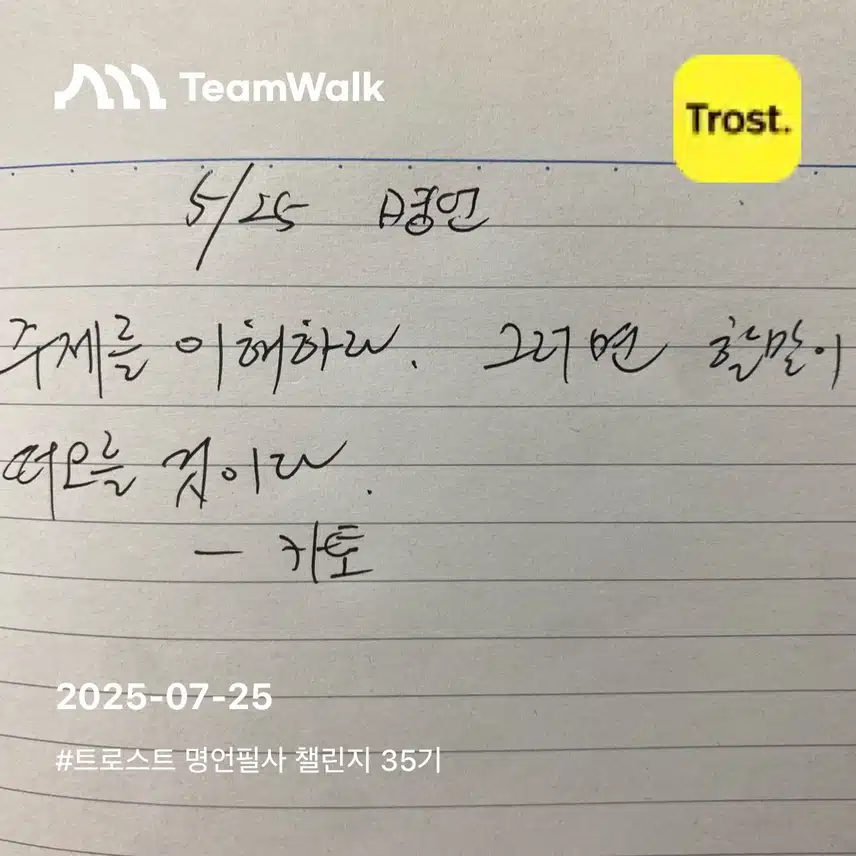 TeamWalk
Trost.
5/25 명언
주제를 이해하라. 그러면 할말이
떠오를 것이라.
- 카토
2025-07-25
#트로스트 명언필사 챌린지 35기